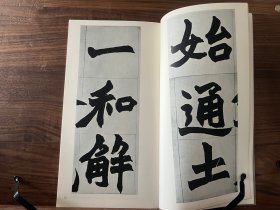 始通土
一和解